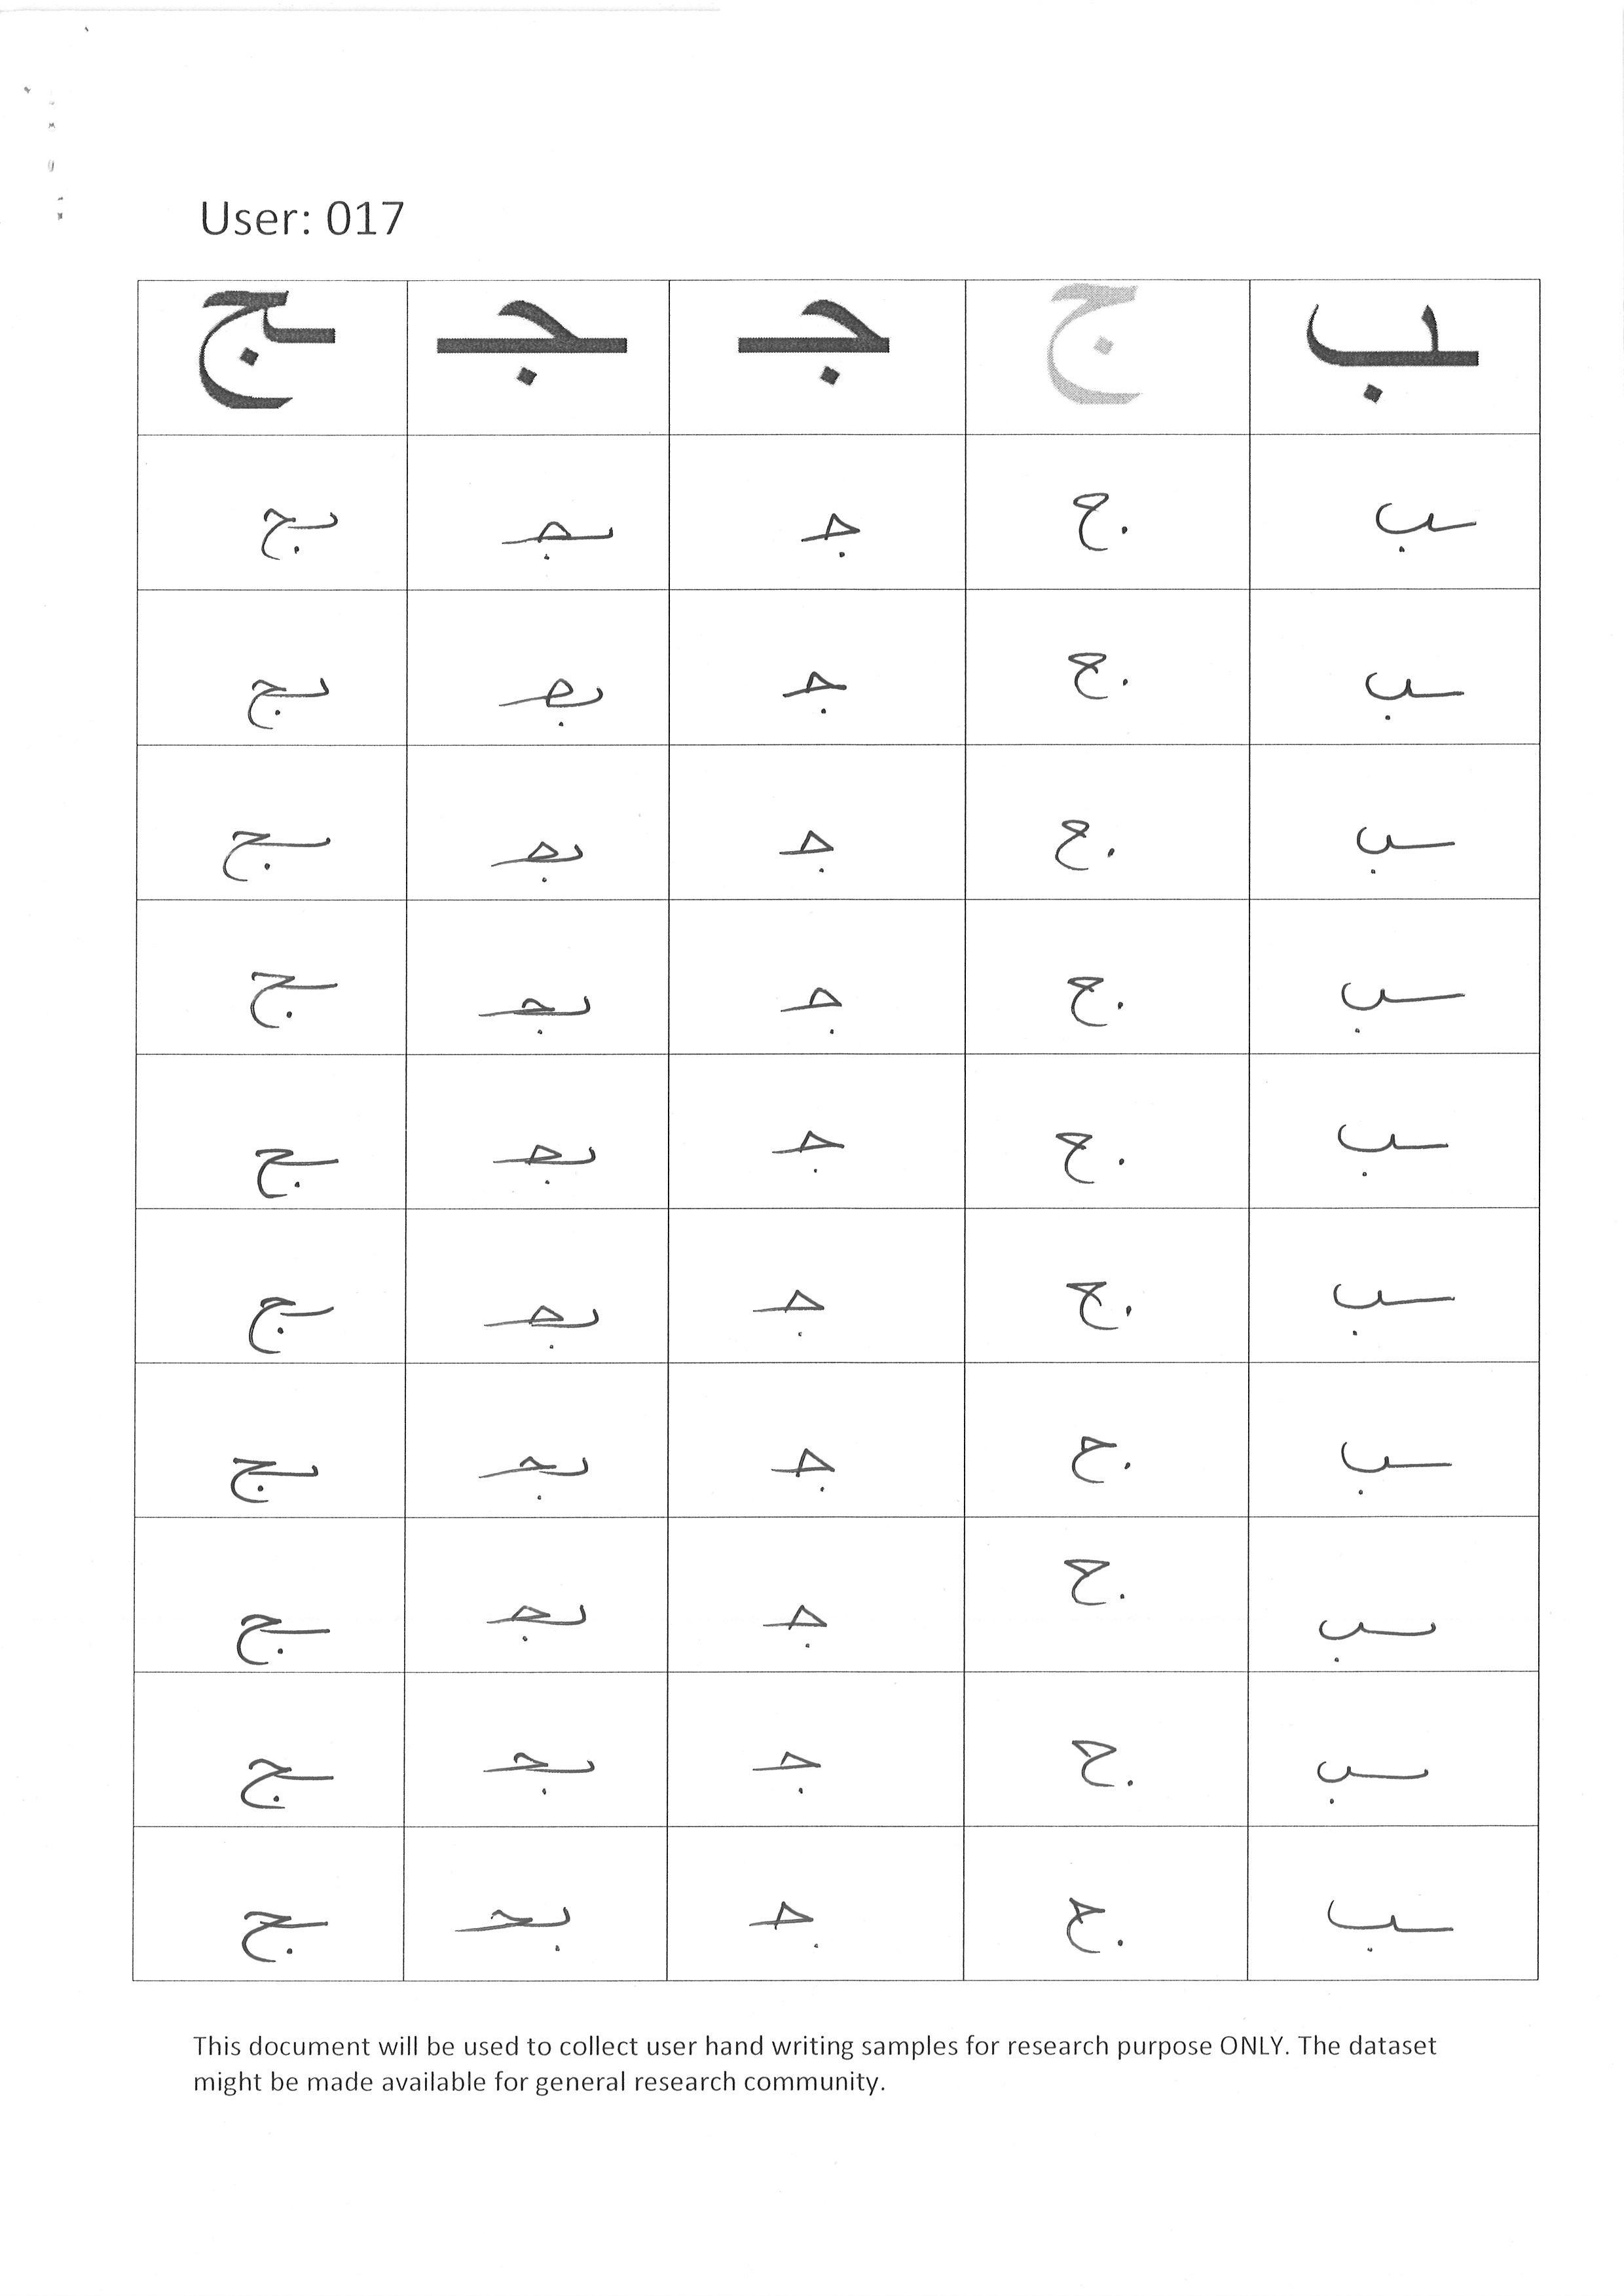 User: 017
ـب ج جـ ـجـ ـج
ـب ج جـ ـجـ ـج
ـب ج جـ ـجـ ـج
ـب ج جـ ـجـ ـج
ـب ج جـ ـجـ ـج
ـب ج جـ ـجـ ـج
ـب ج جـ ـجـ ـج
ـب ج جـ ـجـ ـج
ـب ج جـ ـجـ ـج
ـب ج جـ ـجـ ـج
ـب ج جـ ـجـ ـج
This document will be used to collect user hand writing samples for research purpose ONLY. The dataset
might be made available for general research community.